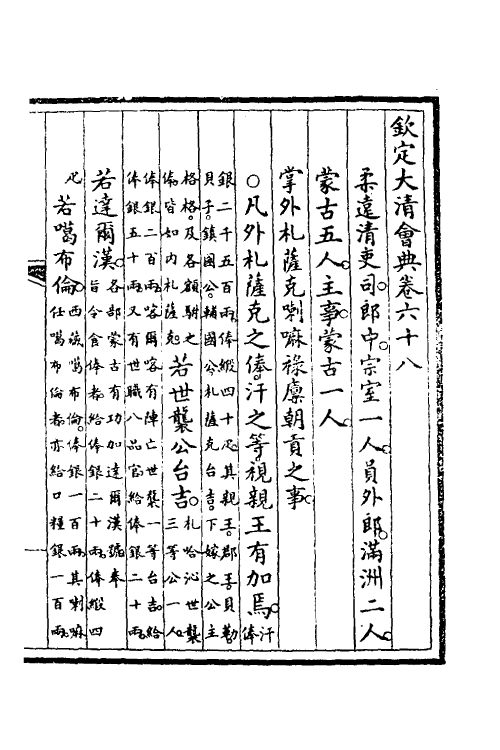 欽定大清會典卷六十八
柔遠清吏司。郎中。宗室一人。員外郎。滿洲二人。
蒙古五人。主事。蒙古一人。
掌外札薩克喇嘛祿廩朝貢之事。
○凡外札薩克之俸。汗之等。視親王有加焉。汗俸
銀二千五百兩。俸緞四十疋。其親王。郡王。貝勒。
貝子。鎮國公。輔國公。札薩克台吉。下嫁之公主
格格。及各額駙之
俸。皆如內札薩克。
若世襲公台吉。
札哈沁世襲
三等公一人。
俸銀二百兩。喀爾喀有陣亡世襲一等台吉。給
俸銀五十兩。又有世職八品官。給俸銀二十兩。
若達爾漢。
各部蒙古有功加達爾漢號。奉
旨令食俸者。給俸銀二十兩。俸緞四
疋
若噶布倫。
西藏噶布倫。俸銀一百兩。其喇嘛
任噶布倫者。亦給口糧銀一百兩。